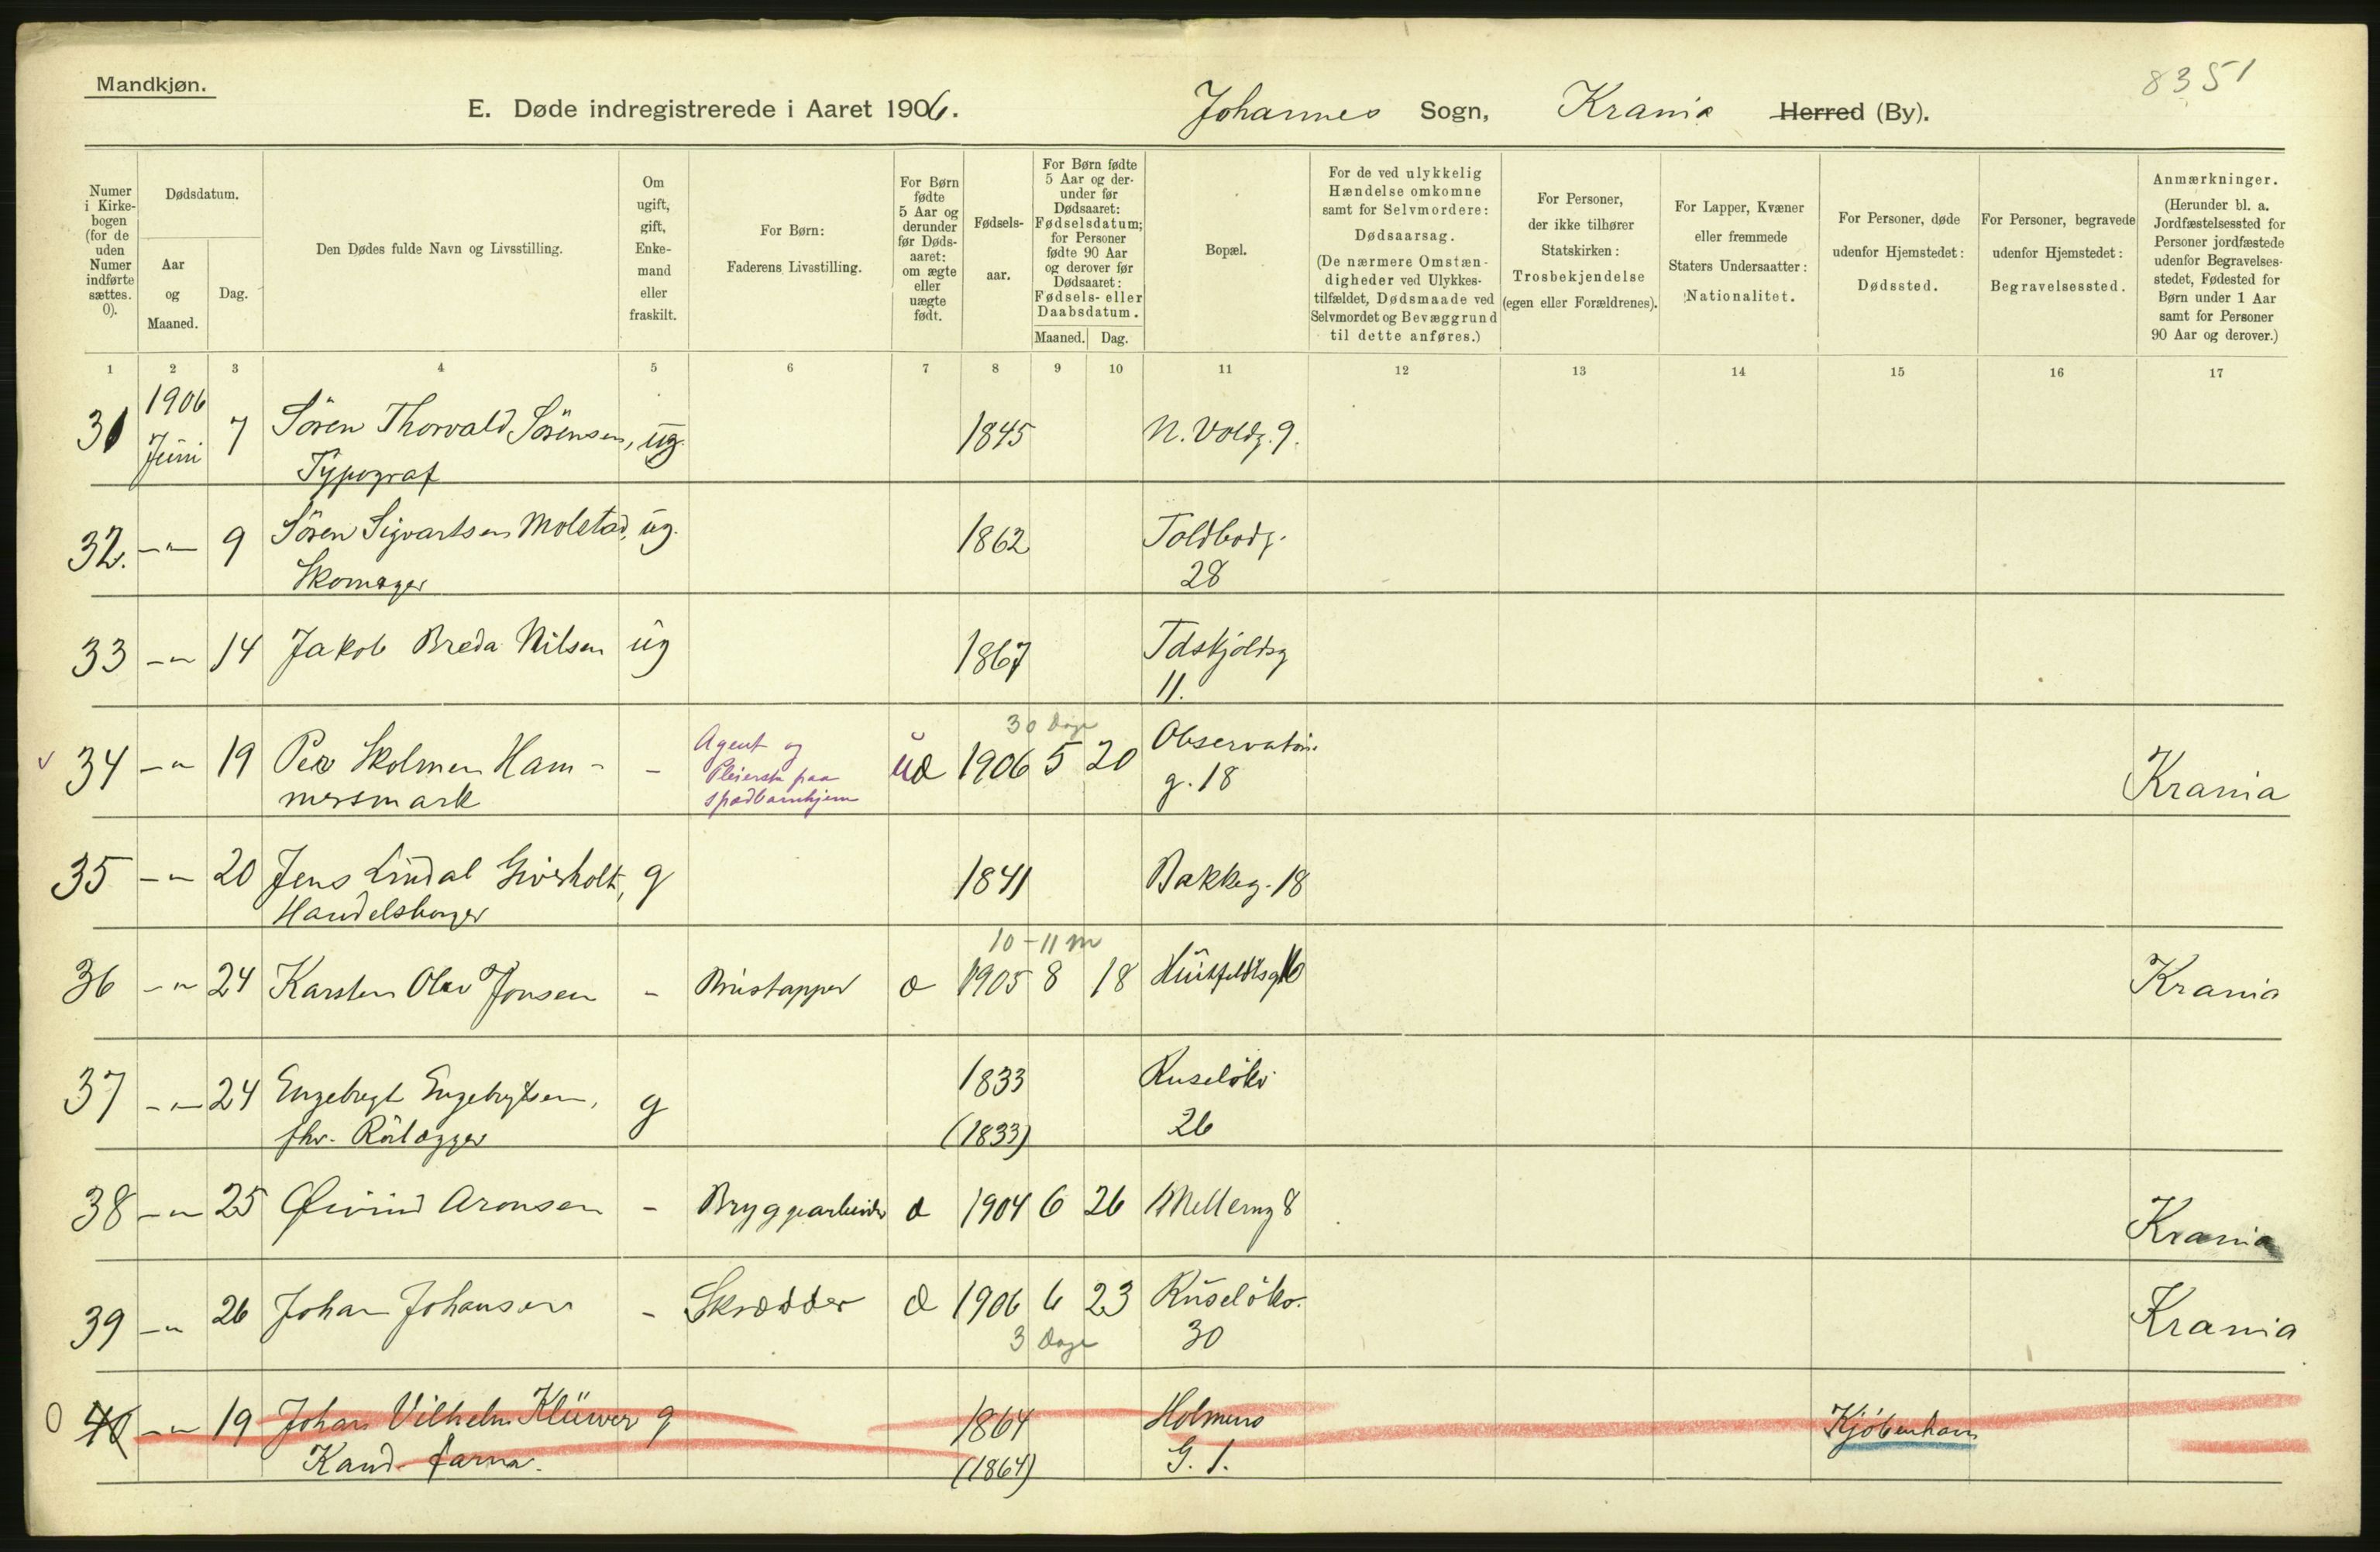 Mandkjøn.
8351
E. Døde indregistrerede i Aaret 1906.
Johannes Sogn, Krania Herred (By).
Numer i Kirke-bogen (for de uden Numer indførte sættes. 0).
Dødsdatum.
Aar og Maaned.
Dag.
Den Dødes fulde Navn og Livsstilling.
Om ugift, gift, Enke-mand eller fraskilt.
For Børn: Faderens Livsstilling.
For Børn fødte 5 Aar og derunder før Døds-aaret: om ægte eller uægte født.
Fødsels-aar.
For Børn fødte 5 Aar og der-under før Dødsaaret: Fødselsdatum; for Personer fødte 90 Aar og derover før Dødsaaret: Fødsels- eller Daabsdatum.
Maaned. Dag.
Bopæl.
For de ved ulykkelig Hændelse omkomne samt for Selvmordere: Dødsaarsag. (De nærmere Omstæn-digheder ved Ulykkes-tilfældet, Dødsmaade ved Selvmordet og Bevæggrund til dette anføres.)
For Personer, der ikke tilhører Statskirken: Trosbekjendelse (egen eller Forældrenes).
For Lapper, Kvæner eller fremmede Staters Undersaatter: Nationalitet.
For Personer, døde udenfor Hjemstedet: Dødssted.
For Personer, begravede udenfor Hjemstedet: Begravelsessted.
Anmærkninger. (Herunder bl. a. Jordfæstelsessted for Personer jordfæstede udenfor Begravelses-stedet, Fødested for Børn under 1 Aar samt for Personer 90 Aar og derover.)
1 2 3 4 5 6 7 8 9 10 11 12 13 14 15 16 17
1906
31 Juni 7 Sören Thorvald Sörensen, ug. 1845 N. Voldg. 9.
Typograf
32. -"- 9 Sören Sigvartsen Molstad, ug. 1862 Toldbodg.
Skomager 28
33 -"- 14 Jakob Breda Nilsen ug 1867 Tdskjoldsg
11.
30 Dage
34 -"- 19 Per Skolmen Ham- - Agent og Pleierske paa spædbarnhjem ud 1906 5 20 Observatori.
mersmark g. 18 Krania
35 -"- 20 Jens Lindal Giverholt, g 1841 Bakkeg. 18
Handelsborger
10-11 m
36 -"- 24 Karsten Olav Jonsen - Brustapper d 1905 8 18 Huitfeldtsg 16 Krania
37 -"- 24 Engebregt Engebregtsen, g 1833 Ruselökv
fhv. Rörlægger (1833) 26
38 -"- 25 Øivind Aronsen - Bryggearbeider d 1904 6 26 Mellemg 8 Krania
39 -"- 26 Johan Johansen - Skrædder d 1906 6 23 Ruselökv. Krania
3 Dage 30
0 40 -"- 19 Johan Vilhelm Klüwer g 1864 Holmens Kjöbenhavn
Kand. farma. (1864) G. 1.